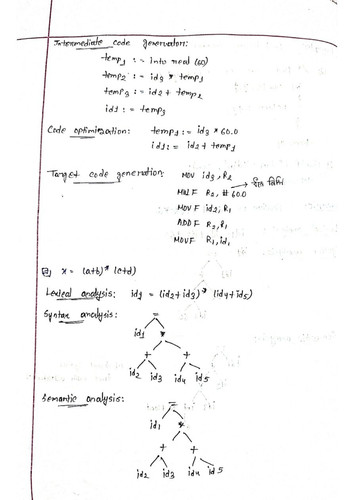 Intermediate code generation:
temp1 := into real (60)
temp2 := id3 * temp1
temp3 := id2 + temp2
id1 := temp3
Code optimization: temp1 := id3 * 60.0
id1 := id2 + temp1
Target code generation: MOV id3, R2
MULF R2, # 60.0
MOVF id2, R1
ADDF R2, R1
MOVF R1, id1
x = (a+b) * (c+d)
Lexical analysis: id1 = (id2 + id3) * (id4 + id5)
Syntax analysis:
=
id1 *
+ +
id2 id3 id4 id5
Semantic analysis:
=
id1 *
+ +
id2 id3 id4 id5